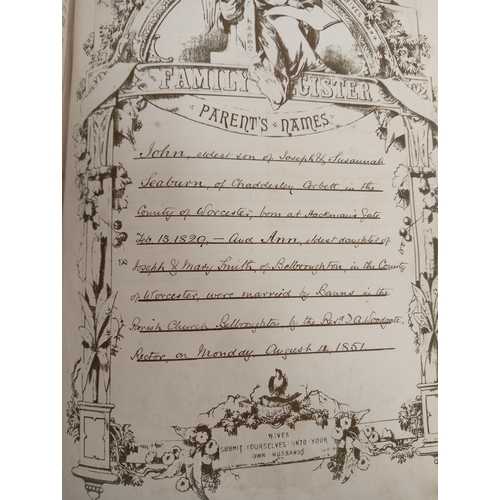 FAMILY REGISTER
PARENT'S NAMES
John, eldest son of Joseph & Susannah
Seaburn, of Chaddesley Corbett, in the
County of Worcester, born at Hackman's Gate
Feb. 13. 1829, — And Ann, eldest daughter of
Joseph & Mary Smith, of Belbroughton, in the County
of Worcester, were married by Banns in the
Parish Church Belbroughton by the Revd. Woodgate,
Rector, on Monday, August 11, 1851
WIVES
SUBMIT YOURSELVES UNTO YOUR
OWN HUSBANDS